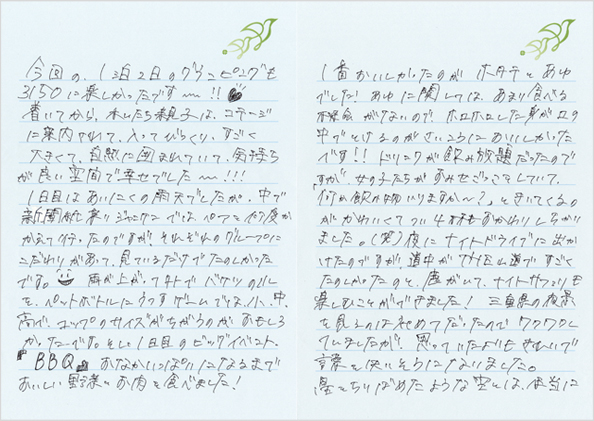 今回の、1泊2日のグランピングも
3150に楽しかったです〜!!
着いてから、わたしたち親子は、コテージ
に案内されて、入ってびっくり、すごく
大きくて、自然に囲まれていて、気持ち
が良い空間で幸せでした〜!!!
1日目はあいにくの雨天でしたが、中で
新聞紙乗りジャンケンではペアを何度か
かえて行ったのですが、それぞれのグループに
こだわりがあって、見ているだけでたのしかった
です。雨が上がって外でバケツの水
を、ペットボトルにうつすゲームでは、小、中、
高で、コップのサイズがちがうのが、おもしろ
かったです。そして1日目のビッグイベント、
『BBQ』おなかいっぱいになるまで
おいしい野菜やお肉を食べました!
1番おいしかったのが ホタテとあゆ
でした!あゆに関しては、あまり食べる
機会がないので、ホロホロした身が口の
中でとけるのがさいこうにおいしかった
です!!ドリンクが飲み放題だったので
すが、女の子たちがおみせごっこをしていて、
何か飲み物いりますか〜?。ときいてくるの
がかわいくてつい4杯もおかわりしちゃい
ました。(笑)夜にナイトドライブに出か
けたのですが、道中が山道ですごく
たのしかったのと、鹿がいて、ナイトサファリも
楽しむことができました! 三重県の夜景
を見るのははじめてだったのでワクワクし
ていましたが、思っていたよりもきれいで
言葉を失いそうになりました。
星をちりばめたような空とは、本当に